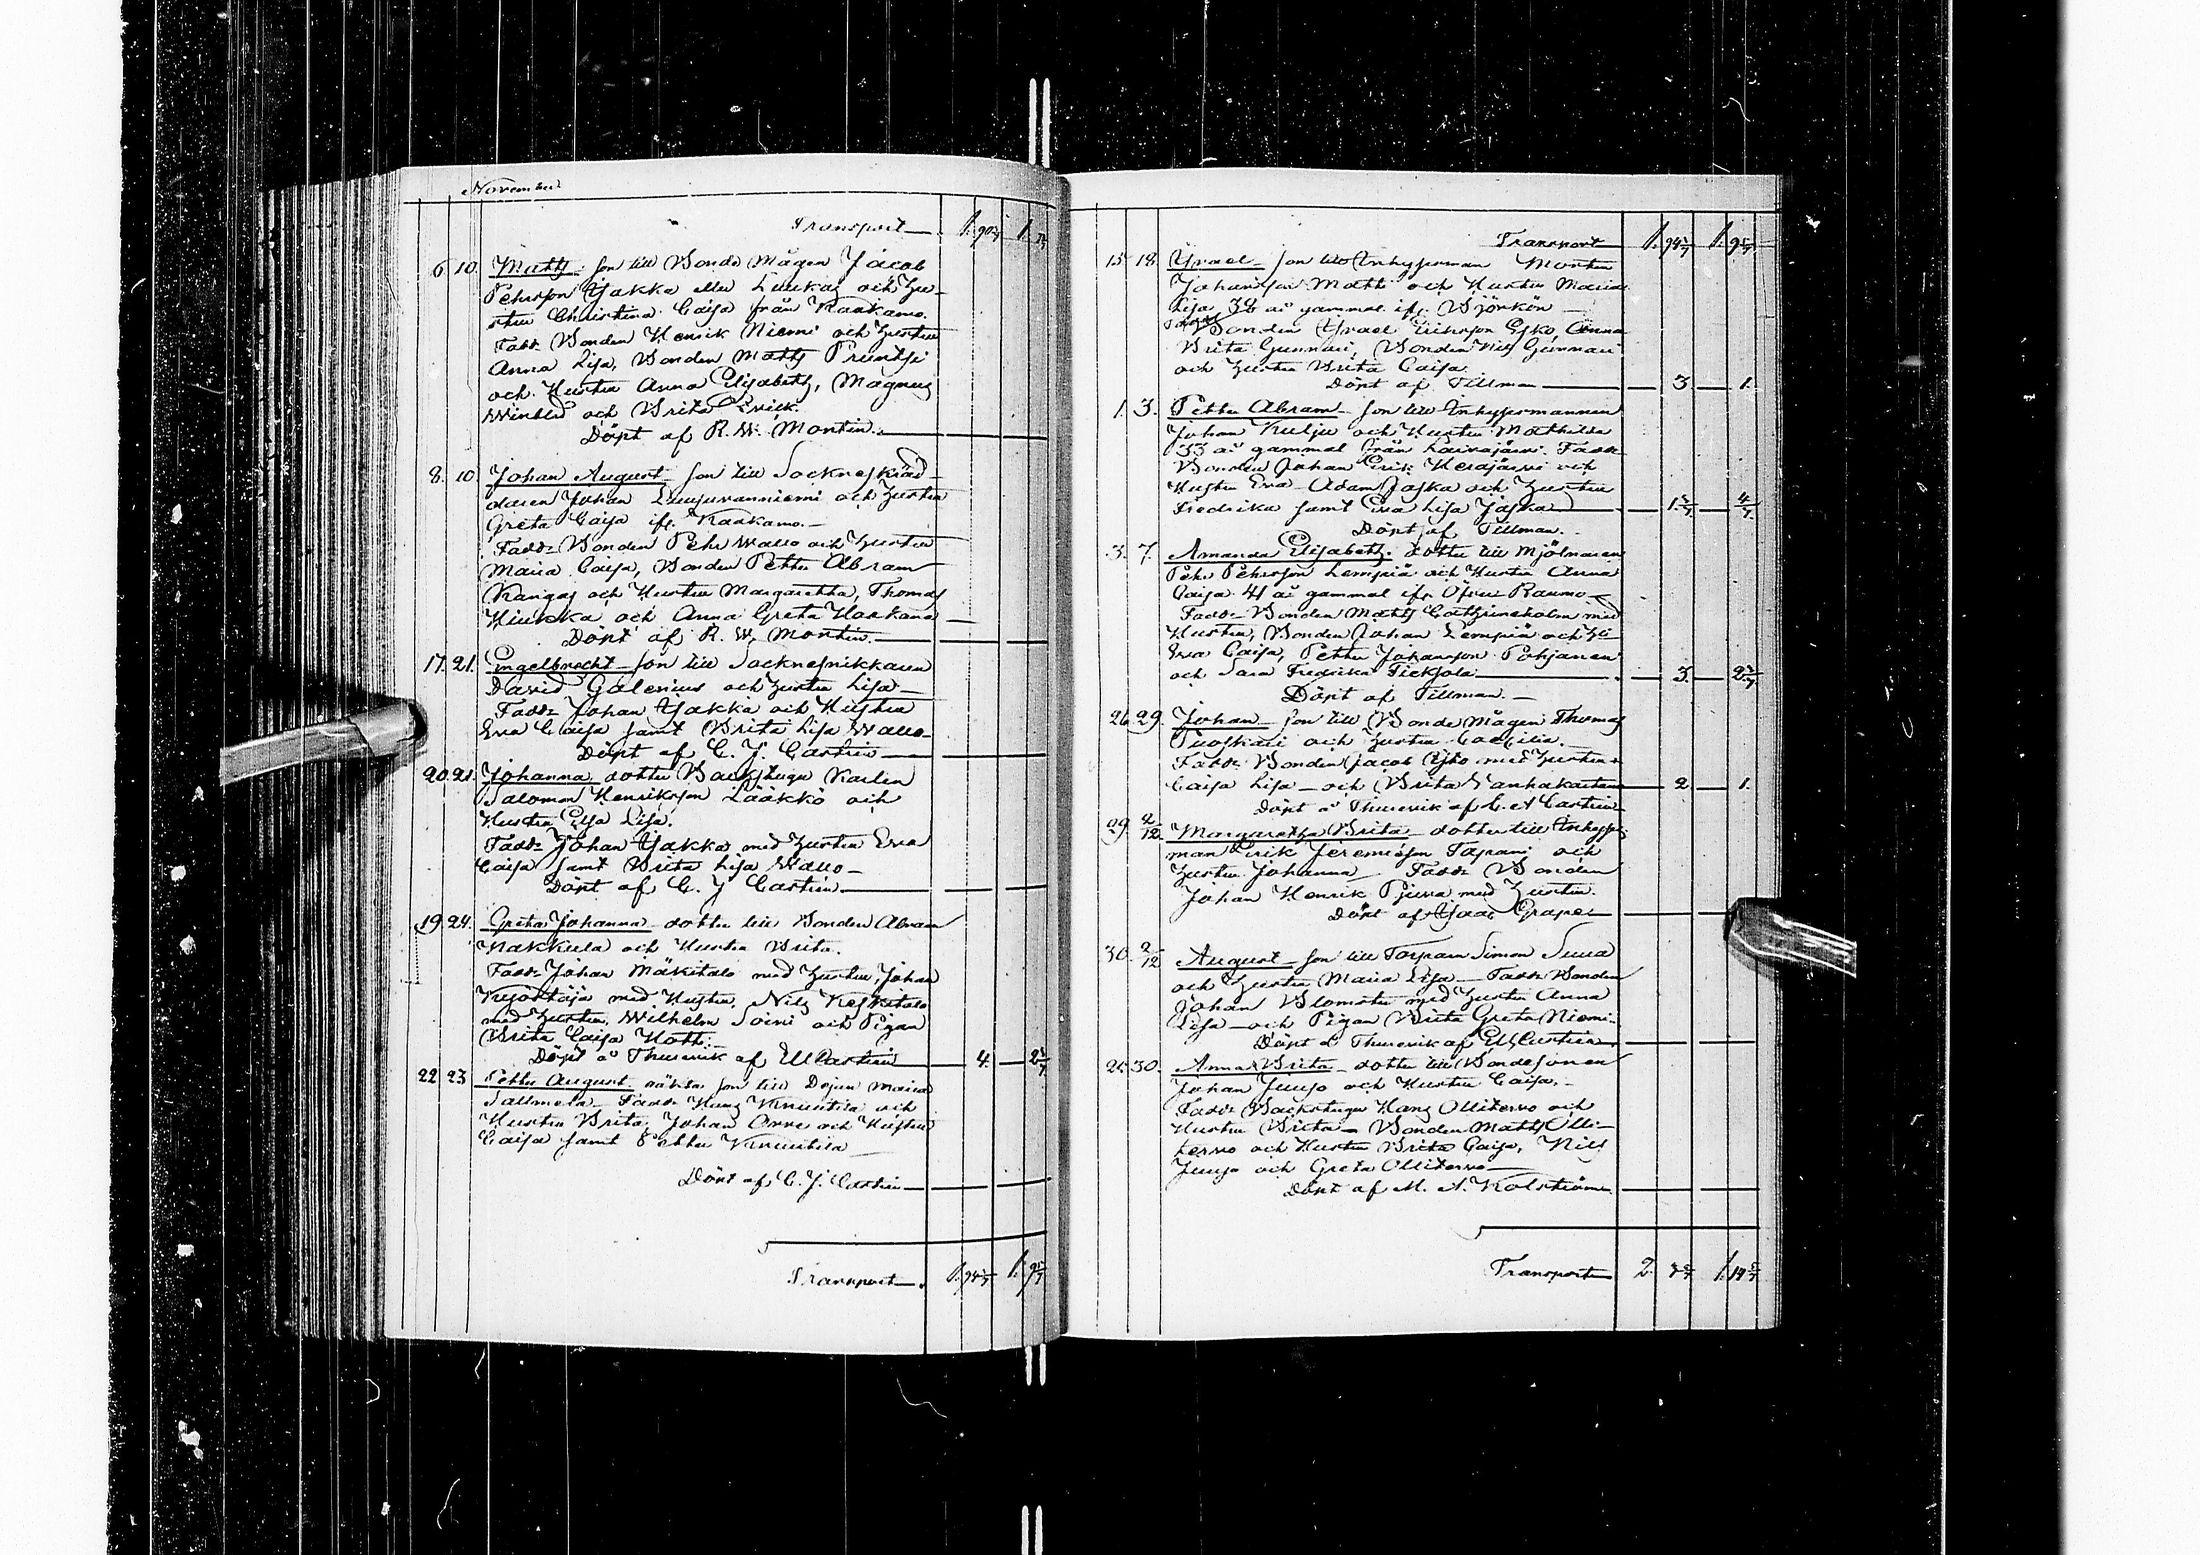 November
Transport 1. 90 1.
6 10. Matts son till Bonde Mågen Jacob
Pehrsson Yakka eller Luukas och Hu-
stru Christina Caisa från Kaakamo.
Fadd: Bonden Henrik Niemi och Hustru
Anna Lisa, Bonden Matts Prüntsi
och Hustru Anna Elisabeth, Magnus
och Brita
Döpt af R. W. Montin.
8. 10 Johan August son till Socknesskräd-
daren Johan Luujuvanniemi och Hustru
Greta Caisa ifr. Kaakamo.
Fadd: Bonden Pehr Wallo och Hustru
Maria Caisa, Bonden Petter Abram
Kangas och Hustru Margaretha, Thomas
Hiukka och Anna Greta Haakana
Döpt af R. W. Montin.
17. 21. Engelbrecht son till Socknesnikkaren
David Galenius och Hustru Lisa
Fadd: Johan Yakka och Hustru
Eva Caisa samt Brita Lisa Wallo
Döpt af C. J. Castrén
20. 21. Johanna dotter Backstugu Karlen
Salomon Henriksson Lääkkö och
Hustru Elsa Lisa.
Fadd: Johan Yakka med Hustru Eva
Caisa samt Brita Lisa Wallo
Döpt af C. J. Castrén
19 24. Greta Johanna dotter till Bonden Abram
Nakkula och Hustru Brita.
Fadd: Johan Mäkitalo med Hustru, Johan
med Hustru, Nils Keskitalo
med Hustru, Wilhelm Soini och Pigan
Brita Caisa
Döpt a Thurevik af Castrén 4. 2
22 23 Petter August oäkta son till Dejan Maria
Sallmela Fadd: Hans Knuutila och
Hustru Brita, Johan Orre och Hustru
Caisa samt Petter Knuutila
Döpt af C. J. Castrén
Transport 1. 94 1. 9
Transport 1. 94 1. 9
15 18. Ysrael son till Inhysesman Morten
Johansson Matti och Hustru Maria
Lisa 38 år gammal ifr. Björkön
Bonden Ysrael Eriksson Esko Anna
Brita Gunnari, Bonden Nils Gunnari
och Hustru Brita Caisa.
Döpt af Tillman 3 1.
1. 3. Petter Abram son till Inhysesmannen
Johan Kulju och Hustru Mathilda
33 år gammal från Laivajärvi. Fadd:
Bonden Johan Erik Herajärvi och
Hustru Eva Adam Jaska och Hustru
Fredrika samt Eva Lisa Jaska 4/7
Döpt af Tillman.
3. 7. Amanda Elisabeth. dotter till Mjölnaren
Pehr Pehrsson Lempiä och Hustru Anna
Caisa 41 år gammal ifr Öfver Raumo
Fadd: Bonden Matts Cathrineholm med
Hustru, Bonden Johan Lempiä och Hu
Eva Caisa, Petter Johansson Pohjanen
och Sara Fredrika Fiekkola 3. 2
Döpt af Tillman.
26 29. Johan son till Bonde Mågen Thomas
Puoskari och Hustru Caecilia.
Fadd: Bonden Jacob Esko med Hustru
Caisa Lisa och Brita Wanhakartano 2 1.
Döpt a Thurevik af C. A Castrén
29. 2/12. Margaretha Brita dotter till Inhyses-
man Erik Jeremiasson Tapani och
Hustru Johanna Fadd: Bonden
Johan Henrik med Hustru.
Döpt af Isac Grape
30. 2/12 August son till Torparn Simon Suna
och Hustru Maria Lisa Fadd: Bonden
Johan Blomster med Hustru Anna
Lisa och Pigan Brita Greta Niemi
Döpt a Thurevik af Castrén
30. Anna Brita dotter till Bondesonen
Johan Juuso och Hustru Caisa.
Fadd: Backstugu Hans Ollitervo och
Hustru Brita Bonden Matts Olli-
tervo och Hustru Brita Caisa, Nils
Juuso och Greta Ollitervo
Döpt af M. A. Kolström.
Transport 2. 1. 14